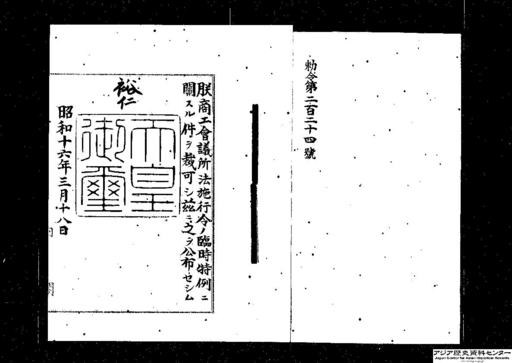 勅令第二百二十四號
朕商工會議所法施行令ノ臨時特例ニ
關スル件ヲ裁可シ茲ニ之ヲ公布セシム
裕仁
天皇御璽
昭和十六年三月十八日
アジア歴史資料センター
Japan Center for Asian Historical Records